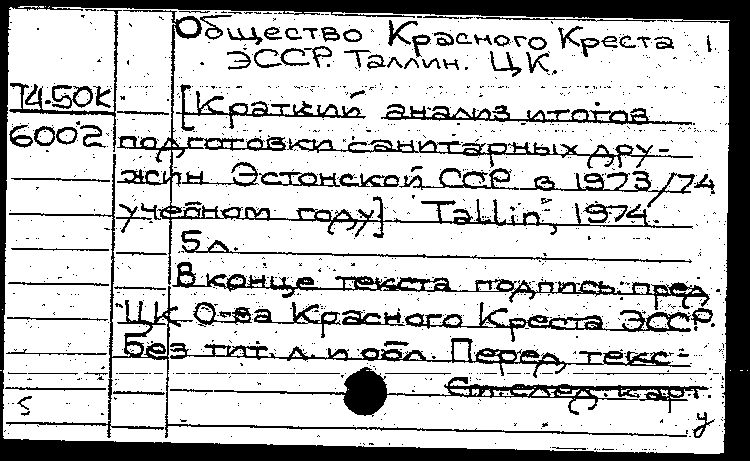 Общество Красного Креста 1
ЭССР. Таллин. ЦК.
74.50К [Краткий анализ итогов
6002 подготовки санитарных дру-
жин Эстонской ССР в 1973/74
учебном году]. Tallin, 1974.
5 л.
В конце текста подпись: пред.
ЦК О-ва Красного Креста ЭССР.
Без тит. л. и обл. Перед текс-
См. след. карт.
5 у